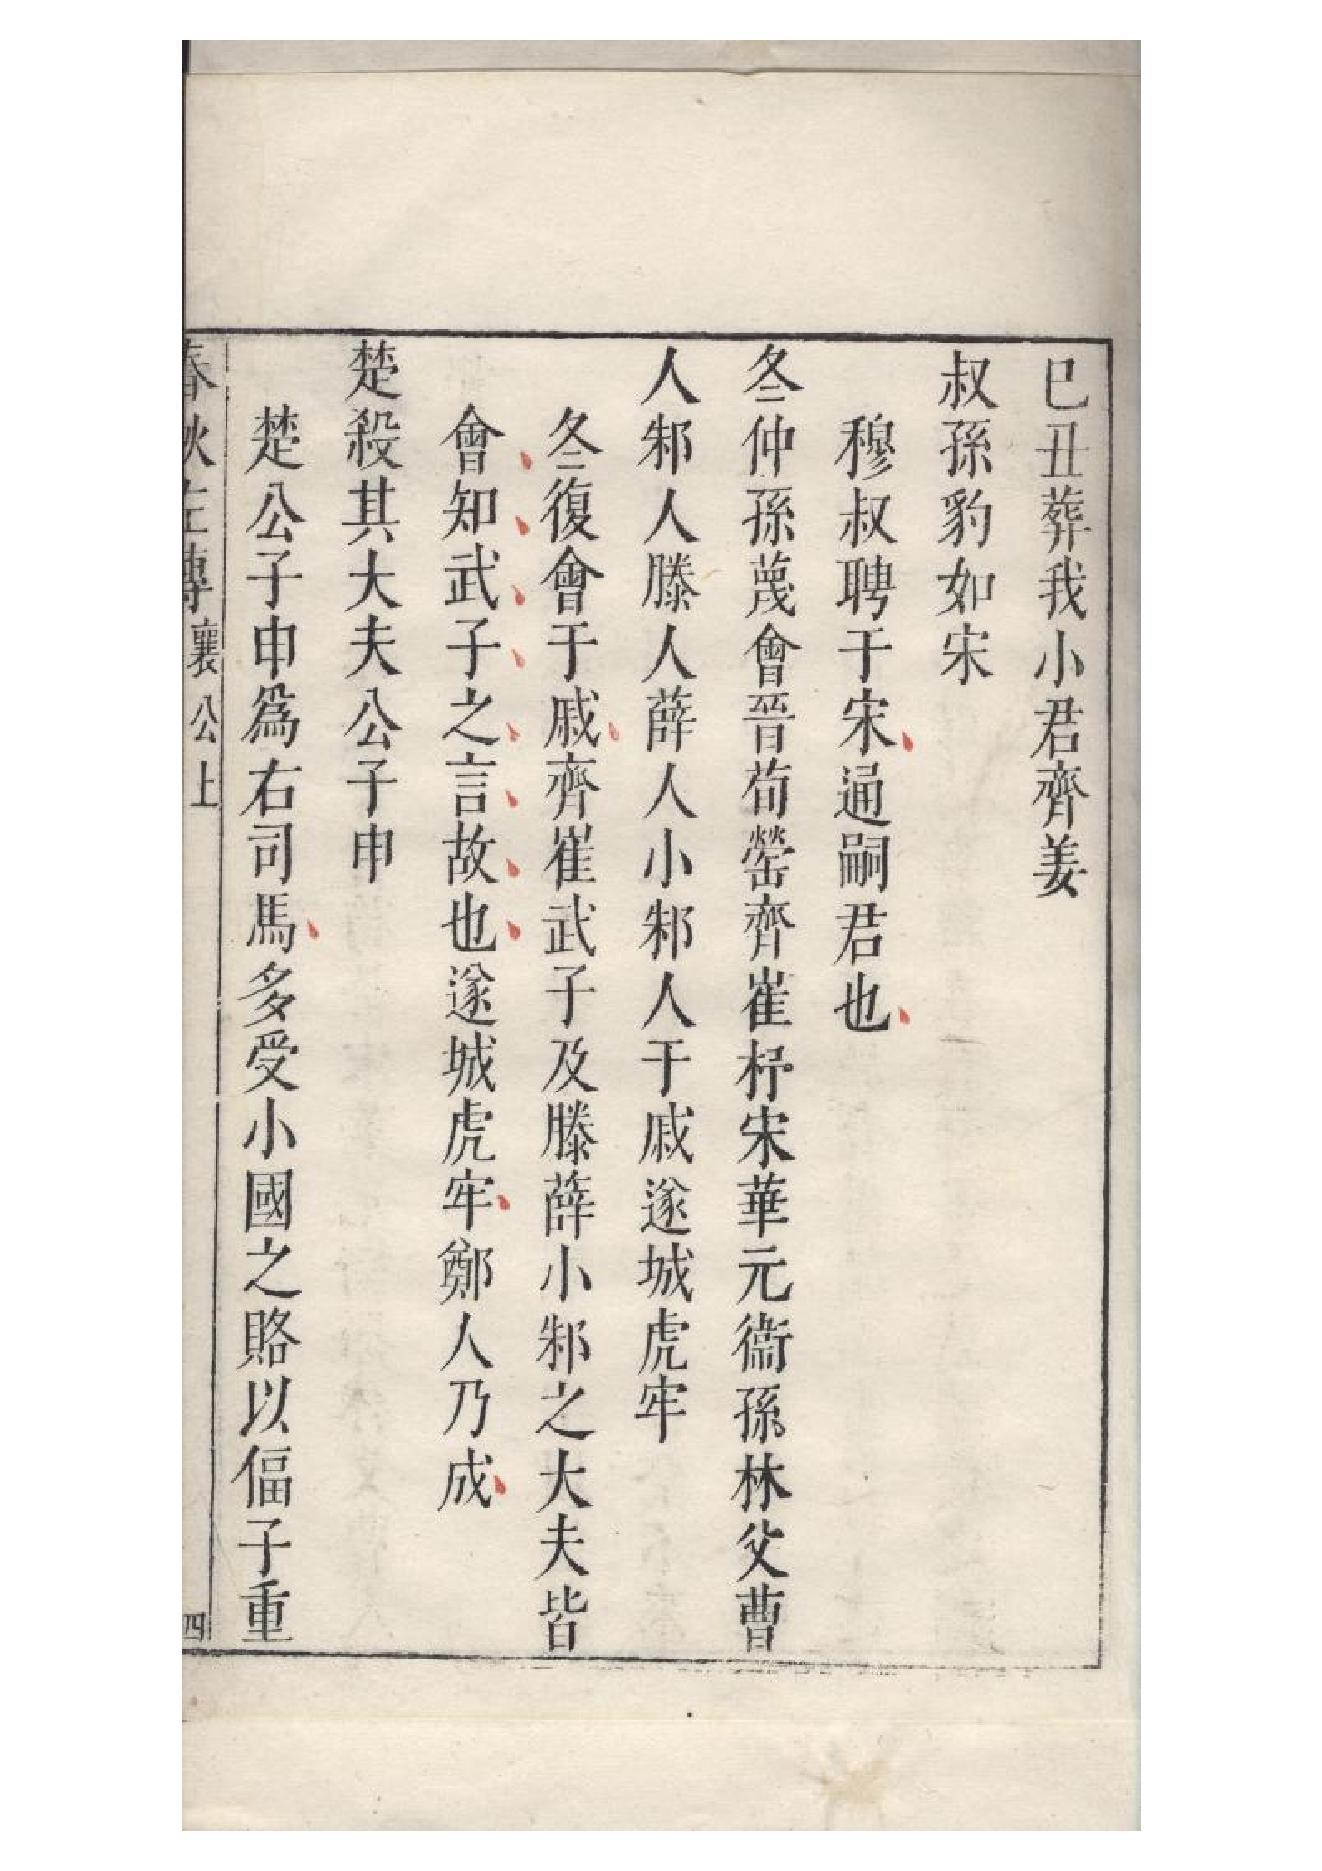 巳丑葬我小君齊姜
叔孫豹如宋
穆叔聘于宋通嗣君也
冬仲孫蔑會晉荀罃齊崔杼宋華元衞孫林父曹
人邾人滕人薛人小邾人于戚遂城虎牢
冬復會于戚齊崔武子及滕薛小邾之大夫皆
會知武子之言故也遂城虎牢鄭人乃成
楚殺其大夫公子申
楚公子申爲右司馬多受小國之賂以偪子重
春秋左傳 襄公上 四